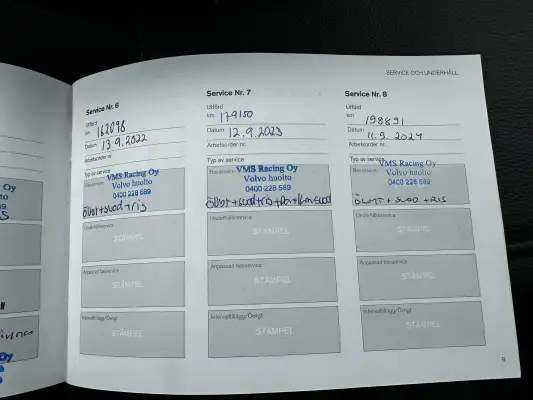 SERVICE OCH UNDERHÅLL
Service Nr. 6
Utförd
km 162098
Datum 13.9.2022
Arbetsorder nr.
Typ av service
Basservice
VMS Racing Oy
Volvo huolto
0400 228 589
Underhållsservice
STÄMPEL
Anpassad basservice
STÄMPEL
Intervalltillägg/Övrigt
STÄMPEL
Service Nr. 7
Utförd
km 179150
Datum 12.9.2023
Arbetsorder nr.
Typ av service
Basservice
VMS Racing Oy
Volvo huolto
0400 228 589
Underhållsservice
STÄMPEL
Anpassad basservice
STÄMPEL
Intervalltillägg/Övrigt
STÄMPEL
Service Nr. 8
Utförd
km 198891
Datum 11.9.2024
Arbetsorder nr.
Typ av service
Basservice
VMS Racing Oy
Volvo huolto
0400 228 589
Underhållsservice
STÄMPEL
Anpassad basservice
STÄMPEL
Intervalltillägg/Övrigt
STÄMPEL
Oy
Oy
9